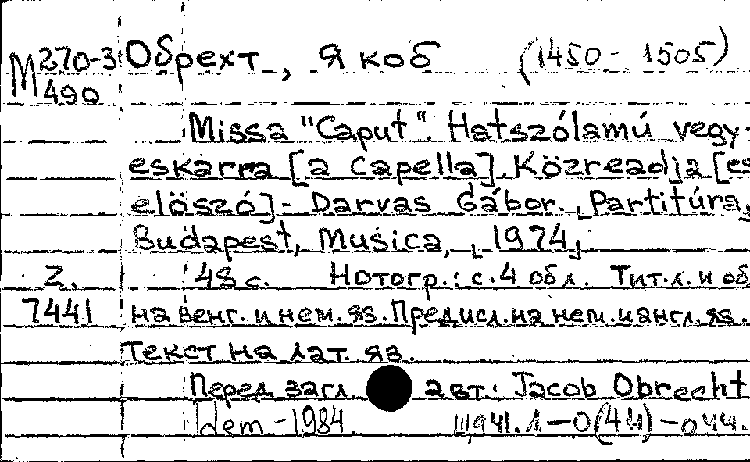 М 270-3 Обрехт, Якоб (1450 - 1505)
490
Missa "Caput". Hatszólamú vegy-
eskarra [a Capella]. Közreadja [es
elöszó] - Darvas Gábor. Partitúra,
Budapest, Musica, [1974]
2. 48 с. Нотогр.: с. 4 обл. Тит. л. и об
7441 на венг. и нем. яз. Предисл. на нем. и англ. яз.
Текст на лат. яз.
Перед загл. авт.: Jacob Obrecht
Idem - 1984.